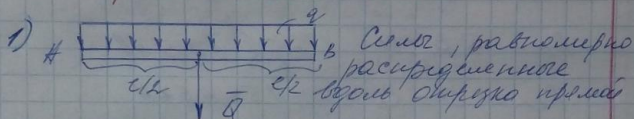 1) A q B Силы, равномерно
распределенные
l/2 l/2 вдоль отрезка прямой
Q